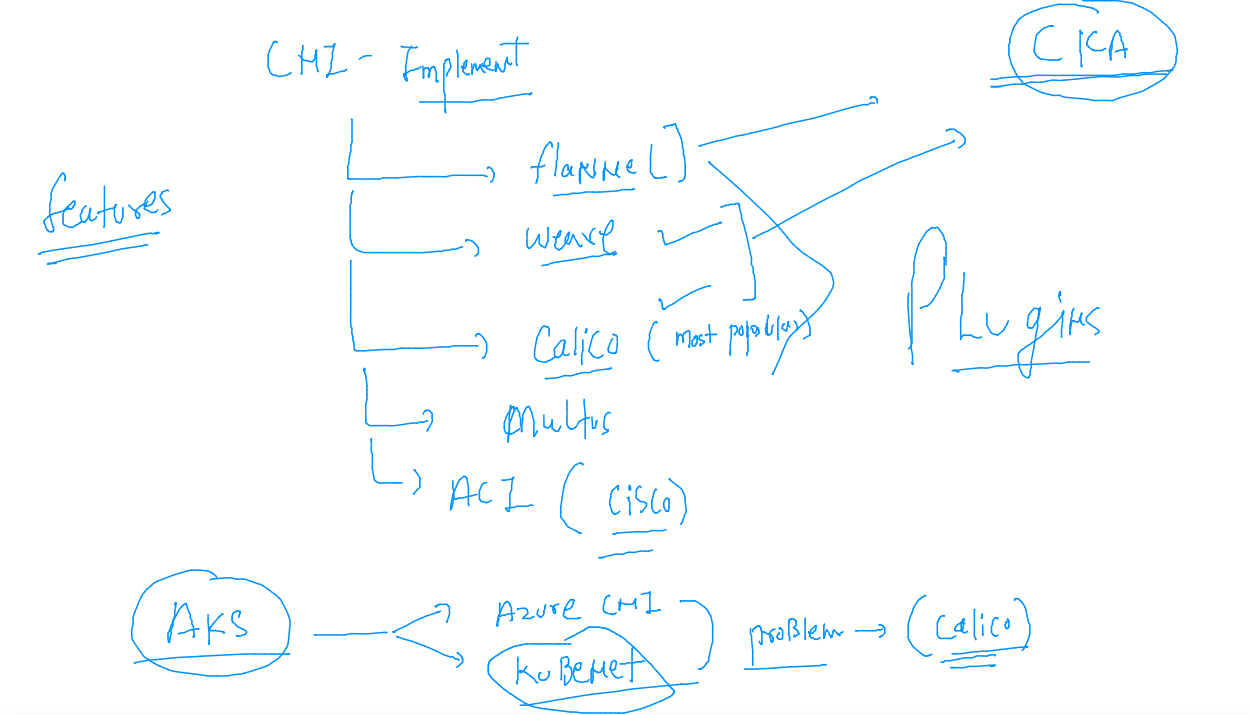 CNI - Implement
CKA
features
flannel
weave
Calico (most popular)
Plugins
Multus
ACI (cisco)
AKS
Azure CNI
KuBenet
proBlem → (calico)